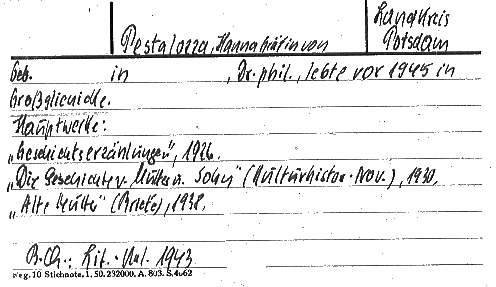 Pestalozza, Hanna Gräfin von
Landkreis
Potsdam
Geb. in , Dr. phil., lebte vor 1945 in
Großglienicke.
Hauptwerke:
„Geschichtserzählungen", 1926.
„Die Geschichte v. Mutter u. Sohn" (Kulturhistor. Nov.), 1930.
„Alte Mutter" (Briefe), 1938.
B. Ch.: Lit. Kal. 1943
Reg. 10 Stichnote. 1, 50. 232000. A. 803. S. 4062